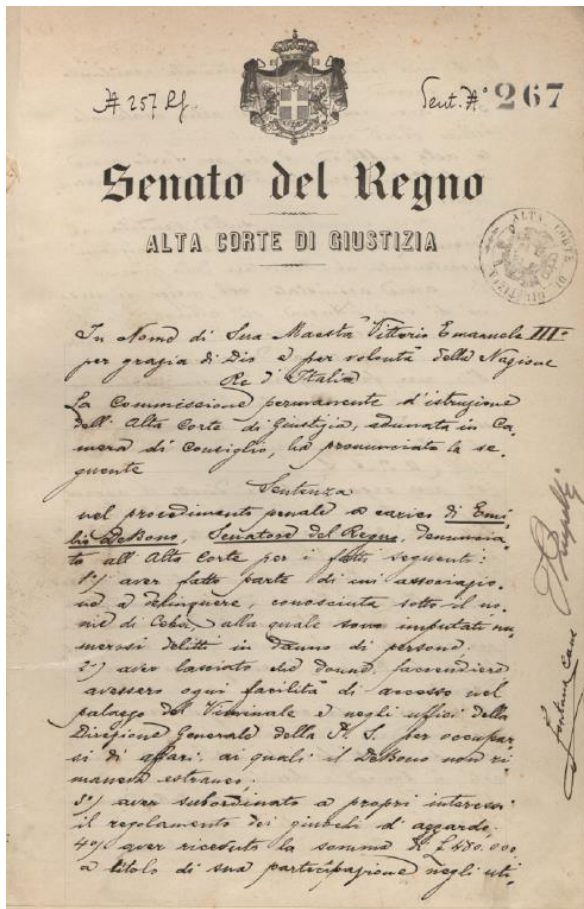 Sent. N° 267
Senato del Regno
ALTA CORTE DI GIUSTIZIA
ALTA CORTE DI GIUSTIZIA
In Nome di Sua Maestà Vittorio Emanuele III°
per grazia di Dio e per volontà della Nazione
Re d'Italia
La Commissione permanente d'istruzione
dell'Alta Corte di Giustizia, adunata in Ca-
mera di Consiglio, ha pronunciato la se-
guente
Sentenza
nel procedimento penale a carico di Emi-
lio DeBono, Senatore del Regno, denunzia-
to all'Alta Corte per i fatti seguenti:
1°) aver fatto parte di un'associazio-
ne a delinquere, conosciuta sotto il no-
me di Ceka, alla quale sono imputati nu-
merosi delitti in danno di persone;
2°) aver lasciato che donne faccendiere
avessero ogni facilità di accesso nel
palazzo del Viminale e negli uffici della
Direzione Generale della P. S. per occupar-
si di affari, ai quali il DeBono non ri-
maneva estraneo;
3°) aver subordinato a propri interessi
il regolamento dei giuochi d'azzardo;
4°) aver ricevuto la somma di £ 480.000
a titolo di sua partecipazione negli uti-
Fontana Cane